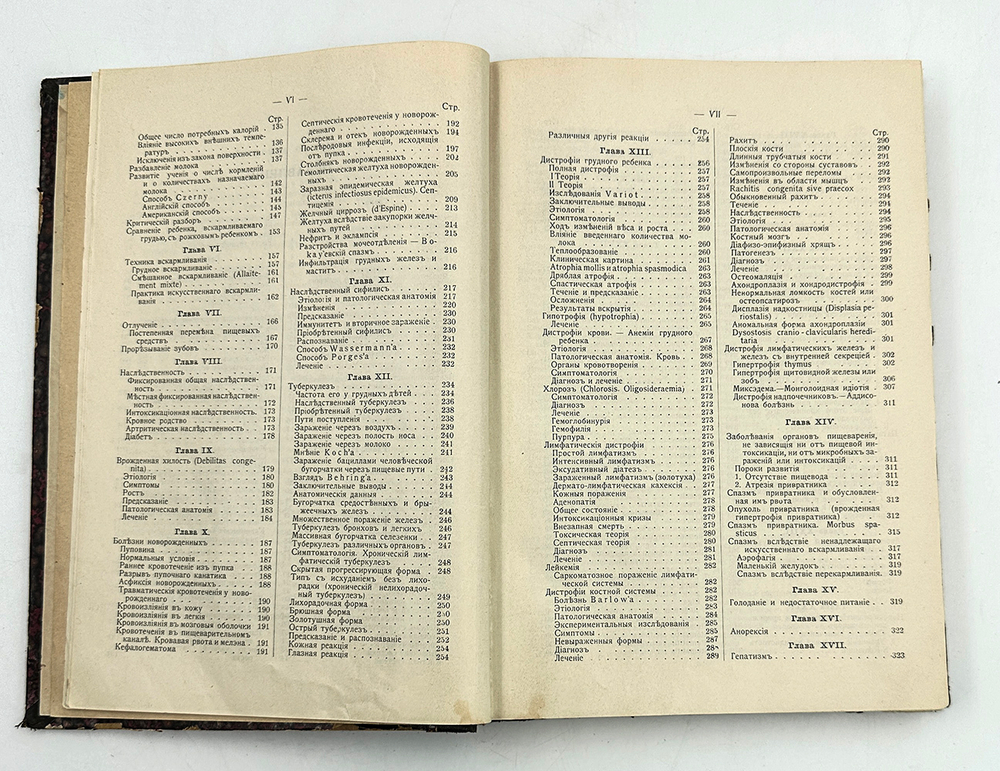 — VI —
Стр.
Общее число потребныхъ калорій . 135
Вліяніе высокихъ внѣшнихъ темпе-
ратуръ . . . 136
Исключенія изъ закона поверхности . 137
Разбавленіе молока . . . 137
Развитіе ученія о числѣ кормленій
и о количествахъ назначаемаго
молока . . . 142
Способъ Czerny . . . 143
Англійскій способъ . . . 144
Американскій способъ . . . 145
Критическій разборъ . . . 147
Сравненіе ребенка, вскармливаемаго
грудью, съ рожковымъ ребенкомъ . 153
Глава VI.
Техника вскармливанія . . . 157
Грудное вскармливаніе . . . 157
Смѣшанное вскармливаніе (Allaite-
ment mixte) . . . 161
Практика искусственнаго вскармли-
ванія . . . 162
Глава VII.
Отлученіе . . . 166
Постепенная перемѣна пищевыхъ
средствъ . . . 167
Прорѣзываніе зубовъ . . . 170
Глава VIII.
Наслѣдственность . . . 171
Фиксированная общая наслѣдствен-
ность . . . 171
Мѣстная фиксированная наслѣдствен-
ность . . . 172
Интоксикаціонная наслѣдственность . 173
Кровное родство . . . 173
Артритическая наслѣдственность . . . 173
Діабетъ . . . 178
Глава IX.
Врожденная хилость (Debilitas conge-
nita) . . . 179
Этіологія . . . 180
Симптомы . . . 180
Ростъ . . . 182
Предсказаніе . . . 183
Патологическая анатомія . . . 183
Леченіе . . . 184
Глава X.
Болѣзни новорожденныхъ . . . 187
Пуповина . . . 187
Нормальныя условія . . . 187
Раннее кровотеченіе изъ пупка . . . 188
Разрывъ пупочнаго канатика . . . 188
Асфиксія новорожденныхъ . . . 188
Травматическія кровотеченія у ново-
рожденнаго . . . 190
Кровоизліянія въ кожу . . . 190
Кровоизліянія въ легкія . . . 190
Кровоизліянія въ мозговыя оболочки 191
Кровотеченія въ пищеварительномъ
каналѣ. Кровавая рвота и мелэна . 191
Кефалогематома . . . 191
Стр.
Септическія кровотеченія у новорож-
деннаго . . . 192
Склерема и отекъ новорожденныхъ 194
Послѣродовыя инфекціи, исходящія
отъ пупка . . . 197
Столбнякъ новорожденныхъ . . . 204
Гемолитическая желтуха новорожден-
ныхъ . . . 205
Заразная эпидемическая желтуха
(icterus infectiosus epidemicus). Сеп-
тицемія . . . 209
Желчный циррозъ (d'Espine) . . . 213
Желтуха вслѣдствіе закупорки желч-
ныхъ путей . . . 214
Нефритъ и эклампсія . . . 215
Разстройства мочеотдѣленія — Bo-
kay'евскій спазмъ . . . 216
Инфильтрація грудныхъ железъ и
маститъ . . . 216
Глава XI.
Наслѣдственный сифилисъ . . . 217
Этіологія и патологическая анатомія 217
Измѣненія . . . 220
Предсказаніе . . . 230
Иммунитетъ и вторичное зараженіе . 230
Пріобрѣтенный сифилисъ . . . 230
Распознаваніе . . . 231
Способъ Wassermann'a . . . 232
Способъ Porges'a . . . 232
Леченіе . . . 232
Глава XII.
Туберкулезъ . . . 234
Частота его у грудныхъ дѣтей . . . 234
Наслѣдственный туберкулезъ . . . 236
Пріобрѣтенный туберкулезъ . . . 238
Пути поступленія . . . 238
Зараженіе черезъ воздухъ . . . 239
Зараженіе черезъ полость носа . . . 240
Зараженіе черезъ молоко . . . 241
Мнѣніе Koch'a . . . 241
Зараженіе бациллами человѣческой
бугорчатки черезъ пищевые пути . 242
Взглядъ Behring'a . . . 243
Заключительные выводы . . . 244
Анатомическія данныя . . . 244
Бугорчатка средостѣнныхъ и бры-
жеечныхъ железъ . . . 244
Множественное пораженіе железъ . 246
Туберкулезъ бронховъ и легкихъ . . 246
Массивная бугорчатка селезенки . . 247
Туберкулезъ различныхъ органовъ . 247
Симптоматологія. Хроническій лим-
фатическій туберкулезъ . . . 248
Скрытая прогрессирующая форма . . 248
Типъ съ исхуданіемъ безъ лихо-
радки (хроническій нелихорадоч-
ный туберкулезъ) . . . 249
Лихорадочная форма . . . 250
Брюшная форма . . . 250
Золотушная форма . . . 250
Острый туберкулезъ . . . 251
Предсказаніе и распознаваніе . . . 252
Кожная реакція . . . 254
Глазная реакція . . . 254
— VII —
Стр.
Различныя другія реакціи . . . 254
Глава XIII.
Дистрофіи грудного ребенка . . . 256
Полная дистрофія . . . 257
I Теорія . . . 257
II Теорія . . . 257
Изслѣдованія Variot . . . 258
Заключительные выводы . . . 258
Этіологія . . . 258
Симптоматологія . . . 260
Ходъ измѣненій вѣса и роста . . . 260
Вліяніе введеннаго количества мо-
лока . . . 260
Теплообразованіе . . . 260
Клиническая картина . . . 261
Atrophia mollis и atrophia spasmodica 263
Дряблая атрофія . . . 263
Спастическая атрофія . . . 263
Теченіе и предсказаніе . . . 263
Осложненія . . . 264
Результаты вскрытія . . . 264
Гипотрофія (hypotrophia) . . . 265
Леченіе . . . 265
Дистрофіи крови. — Анеміи грудного
ребенка . . . 267
Этіологія . . . 268
Патологическая анатомія. Кровь . . . 268
Органы кровотворенія . . . 269
Симптоматологія . . . 270
Діагнозъ и леченіе . . . 271
Хлорозъ (Chlorosis. Oligosideraemia) . 271
Симптоматологія . . . 272
Діагнозъ . . . 272
Леченіе . . . 273
Гемоглобинурія . . . 273
Гемофилія . . . 273
Пурпура . . . 275
Лимфатическія дистрофіи . . . 276
Простой лимфатизмъ . . . 276
Интенсивный лимфатизмъ . . . 276
Экссудативный діатезъ . . . 276
Зараженный лимфатизмъ (золотуха) . 276
Дермато-лимфатическая кахексія . . . 277
Кожныя пораженія . . . 277
Аденопатія . . . 278
Общее состояніе . . . 278
Интоксикаціонные кризы . . . 279
Внезапная смерть . . . 279
Токсическая теорія . . . 280
Септическая теорія . . . 280
Діагнозъ . . . 281
Леченіе . . . 281
Лейкемія . . . 282
Саркоматозное пораженіе лимфати-
ческой системы . . . 282
Дистрофіи костной системы . . . 282
Болѣзнь Barlow'a . . . 282
Этіологія . . . 283
Патологическая анатомія . . . 284
Экспериментальныя изслѣдованія . . . 285
Симптомы . . . 285
Невыраженныя формы . . . 287
Діагнозъ . . . 28
Леченіе . . . 289
Стр.
Рахитъ . . . 290
Плоскія кости . . . 290
Длинныя трубчатыя кости . . . 291
Измѣненія со стороны суставовъ . . . 291
Самопроизвольные переломы . . . 292
Измѣненія въ области мышцъ . . . 292
Rachitis congenita sive praecox . . . 293
Обыкновенный рахитъ . . . 294
Теченіе . . . 294
Наслѣдственность . . . 294
Этіологія . . . 295
Патологическая анатомія . . . 296
Костный мозгъ . . . 296
Діафизо-эпифизный хрящъ . . . 296
Патогенезъ . . . 297
Діагнозъ . . . 297
Леченіе . . . 298
Остеомаляція . . . 299
Ахондроплазія и хондродистрофія . . . 299
Ненормальная ломкость костей или
остеопсатирозъ . . . 300
Дисплазія надкостницы (Displasia pe-
riostalis) . . . 301
Аномальная форма ахондроплазіи 301
Dysostosis cranio - clavicularis heredi-
taria . . . 301
Дистрофіи лимфатическихъ железъ и
железъ съ внутренней секреціей . 302
Гипертрофія thymus . . . 302
Гипертрофія щитовидной железы или
зобъ . . . 306
Миксэдема.—Монголоидная идіотія . 307
Дистрофія надпочечниковъ.—Аддисо-
нова болѣзнь . . . 311
Глава XIV.
Заболѣванія органовъ пищеваренія,
не зависящія ни отъ пищевой ин-
токсикаціи, ни отъ микробныхъ за-
раженій или интоксикацій . . . 311
Пороки развитія . . . 311
1. Отсутствіе пищевода . . . 311
2. Атрезія привратника . . . 312
Спазмъ привратника и обусловлен-
ная имъ рвота . . . 312
Опухоль привратника (врожденная
гипертрофія привратника) . . . 312
Спазмъ привратника. Morbus spa-
sticus . . . 315
Спазмъ вслѣдствіе ненадлежащаго
искусственнаго вскармливанія . . . 317
Аэрофагія . . . 317
Маленькій желудокъ . . . 319
Спазмъ вслѣдствіе перекармливанія. 319
Глава XV.
Голоданіе и недостаточное питаніе . . 319
Глава XVI.
Анорексія . . . 322
Глава XVII.
Гепатизмъ . . . 323